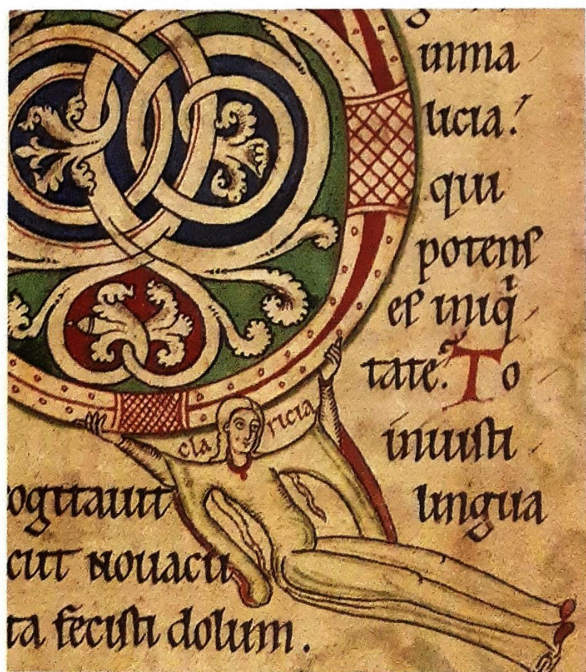 inma
licia!
qui
potens
es iniq̇
tate. To
cla ricia
inuisti
ogitauit
lingua
cut nouacu
ta fecisti dolum.